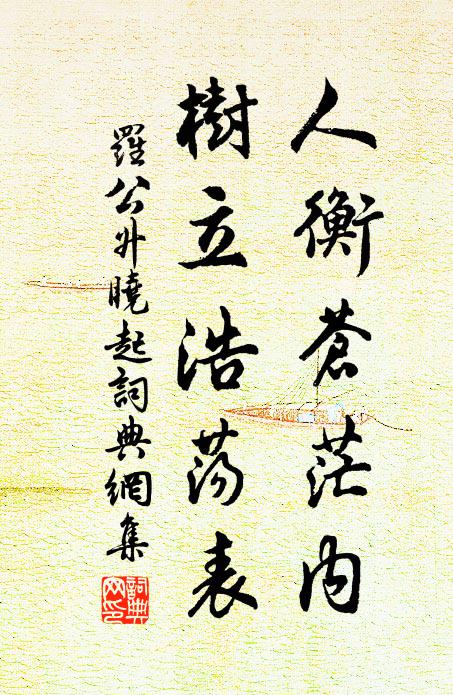 人衡蒼茫內
樹立浩蕩表
羅公升曉起詞典網集
詞典網印